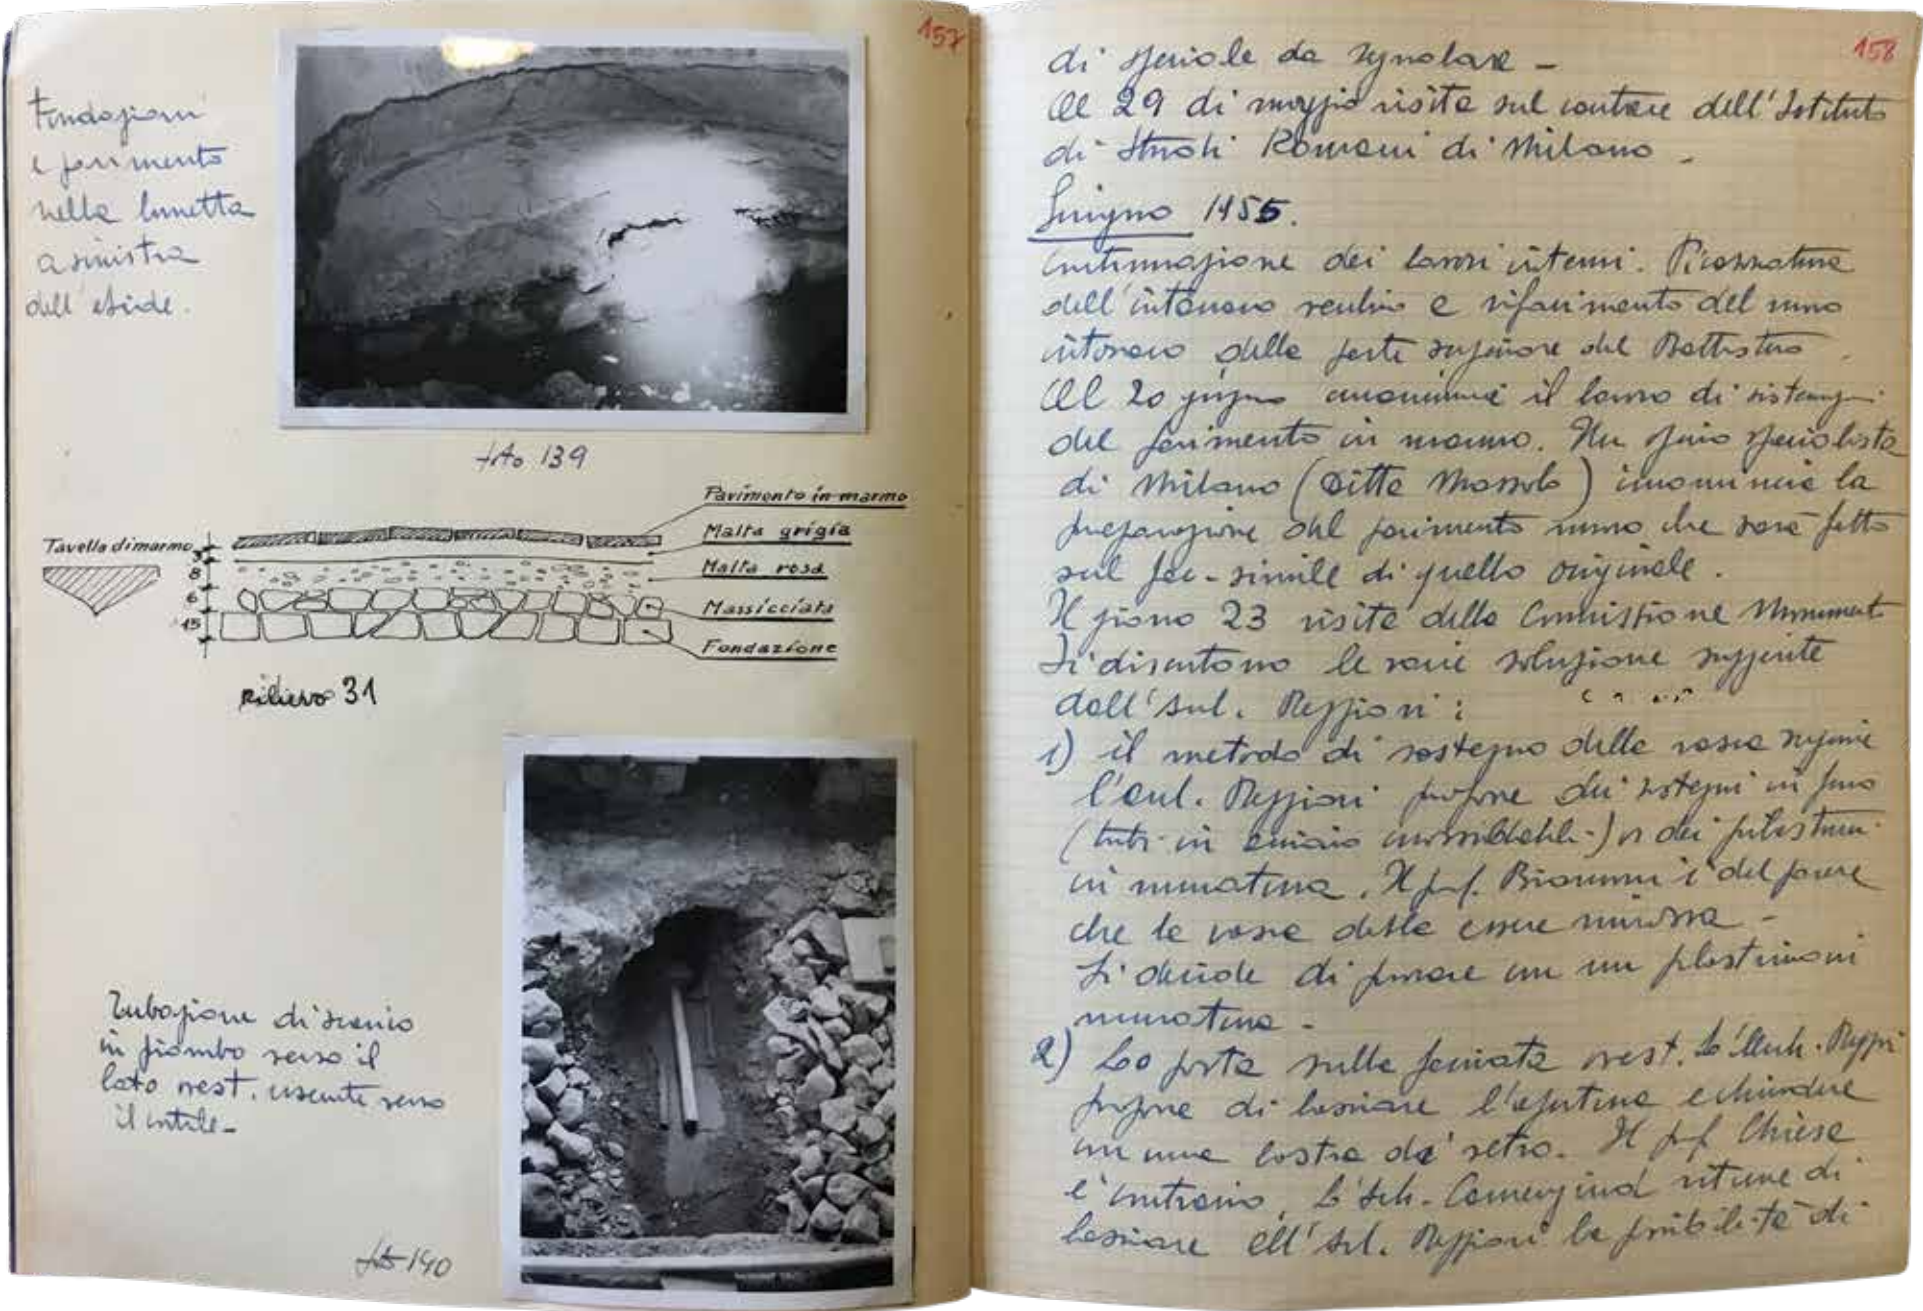 157
Fondazioni
e pavimento
nella lunetta
a sinistra
dell'abside.
foto 139
Pavimento in marmo
Malta grigia
Tavella di marmo
Malta rosa
8
6
Massicciata
15
Fondazione
rilievo 31
Tubazione di scarico
in piombo verso il
lato ovest. uscente verso
il cortile-
foto 140
158
di speciale da segnalare -
Al 29 di maggio visita sul cantiere dell'Istituto
di Studi Romani di Milano -
Giugno 1955.
Continuazione dei lavori interni. Picozzatura
dell'intonaco vecchio e rifacimento del nuovo
intonaco della parte superiore del Battistero.
Al 20 giugno incomincia il lavoro di
del pavimento in marmo. Un operaio specialista
di Milano (Ditta) incomincia la
preparazione del pavimento nuovo che sarà fatto
sul fac-simile di quello originale.
Il giorno 23 visita della Commissione Monument
Si discutono le varie soluzione suggerite
dall'Arch. Reggiori:
1) il metodo di sostegno della vasca superiore
l'Arch. Reggiori propone dei sostegni in ferro
(tubi in acciaio inossidabile) o dei pilastrini
in muratura. Il prof. è del parere
che la vasca debba essere rimossa -
Si decide di provare con un pilastrini in
muratura -
2) La porta sulla facciata ovest. L'Arch. Reggiori
propone di lasciare l'apertura e chiudere
con una lastra di vetro. Il prof. Chiesa
è contrario, L'Arch. ritiene di
lasciare all'Arch. Reggiori la possibilità di